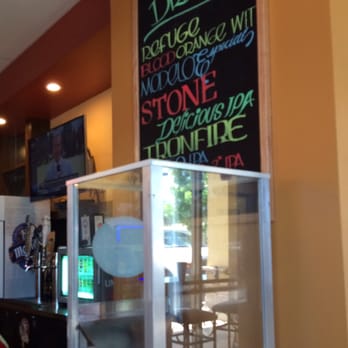 REFUGE
BLOOD ORANGE WIT
MODELO Especial
STONE
Delicious IPA
IRONFIRE
IPA